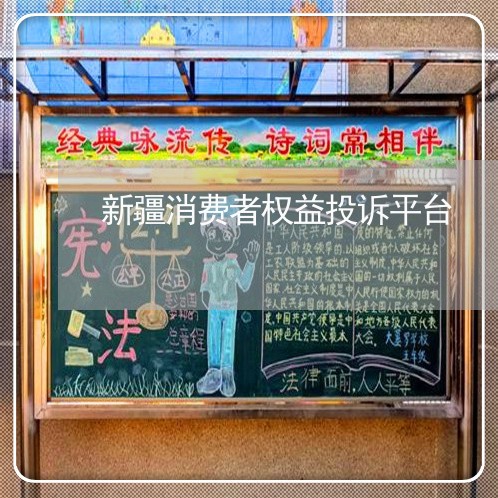 经典咏流传 诗词常相伴
新疆消费者权益投诉平台
宪
法
12.4
公平 公正
总章程
中华人民共和国
是工人阶级领导的,以
工农联盟为基础的
人民民主专政的社会主义
国家,社会主义制度是中
华人民共和国的根本制
度,中国共产党领导是中
国特色社会主义最本
质的特征,禁止任何
组织或者个人破坏社会
主义制度,中华人民共和
国的一切权利属于人民,
人民行使国家权力的机
关是全国人民代表大会
和地方各级人民代表
大会。
五年级
法律面前,人人平等